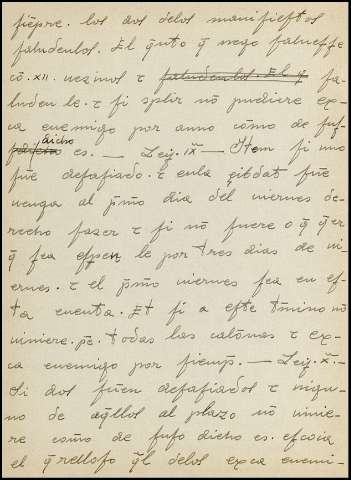 siẽpre. los dos delos manifiestos
saludenlos. El q̃nto q̃ nego salueſſe
cõ .XII. uezinos τ saludenlos. El q̃ sa-
luden le. τ si splir nõ pudiere ex-
ca enemigo por anno cõmo de suſ-
dicho es. — Leẏ. ix̃ — Item si mo
fũe desafiado. τ enla çibdat fũe
uenga al p̃mo dia del uiernes de-
recho fazer τ si nõ fuere o q̃ q̃er
q̃ sea esperen le por tres dias de ui-
ernes. τ el p̃mo uiernes sea en es-
ta cuenta. Et si a este t̃mino nõ
uiniere. pẽ. todas las calõnas τ ex-
ca enemigo por siemp̃. — Leẏ. x̃. —
Si dos fũen desafiados τ nigu-
no de aq̃llos al plazo nõ uinie-
re cõmo de suso dicho es. escoia
el q̃relloso q̃l delos exca enemi-